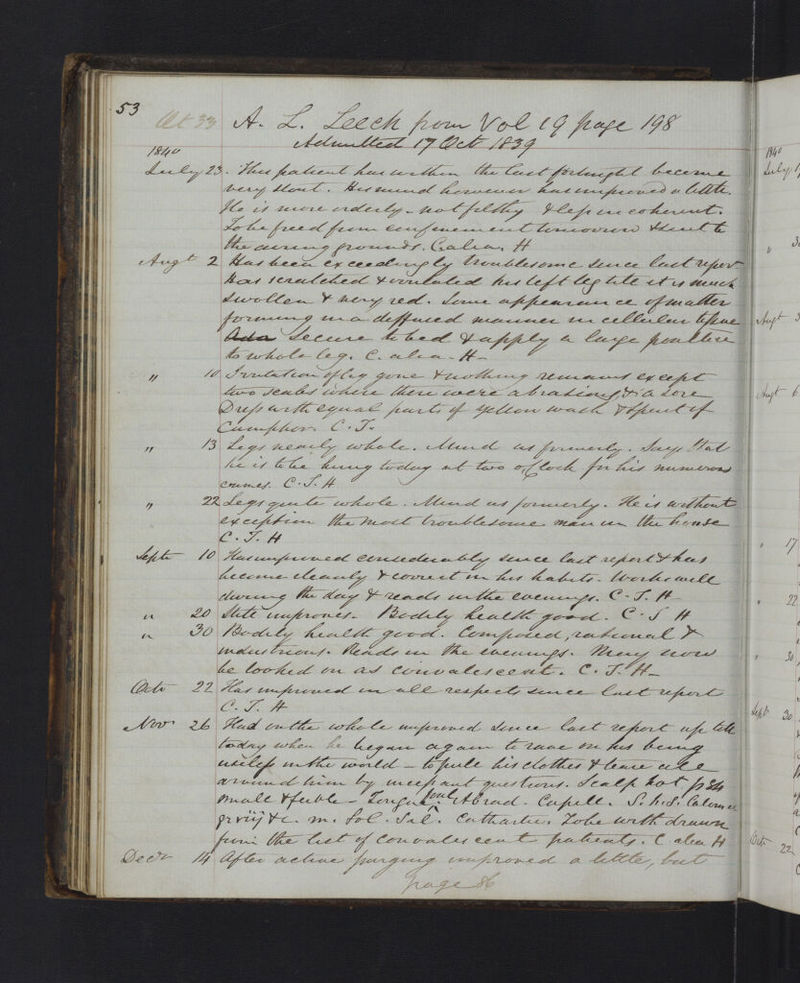 53
Æt 33 A. L. Leech from Vol 19 page 198
Admitted 17 Oct 1839
1840
July 23. This patient has within the last fortnight become
very stout. His mind however has improved a little.
He is more orderly - not filthy & less incoherent.
To be freed from confinement tomorrow & sent to
the airing grounds. C. alia. H
Augt 2 Has been exceedingly troublesome since last report
Has scratched & irritated his left leg till it is much
swollen & very red. Some appearance of matter
forming in a diffused manner in cellular tissue
Secure to bed & apply a large poultice
to whole leg. C. alia. H-
" 10 Irritation of leg gone & nothing remains except
two scabs where there were abrasions & a sore
Dress with equal parts of yellow wash & Spirit of
Camphor. C. T.
" 13 Legs nearly whole. Mind as formerly. Says that
he is to be hung today at two o,Clock for his numerous
crimes. C. T. H
" 22 Legs quite whole. Mind as formerly. He is without
exception the most troublesome man in the house
C. T. H
Septr 10 Has improved considerably since last report & has
become cleanly & correct in his habits. Works well
during the day & reads in the evenings. C. T. H
" 20 Still improves. Bodily health good. C. T H
" 30 Bodily health good. Composed, rational &
industrious. Reads in the evenings. May now
be looked on as convalescent. C. T. H-
Octr 22 Has improved in all respects since last report
C. T. H
Novr 26 Had on the whole improved since last report up till
today when he began again to rave on his being
useless in the world - to pull his clothes & tease all
around him by incessant questions. Scalp hot, pulse
small & feeble - Tongue foul Abrad. Capill. S. h. S. Calomel
gr viij & c. m. Sol. Sal. Cathartic. To be withdrawn
from the list of convalescent patients. C alia H
Decr 14 After active purging improved a little, but
page 86
1840
July 1
" 3
Augt 3
Augt 6
" 17
" 22
" 30
Septr 30
Octr 22